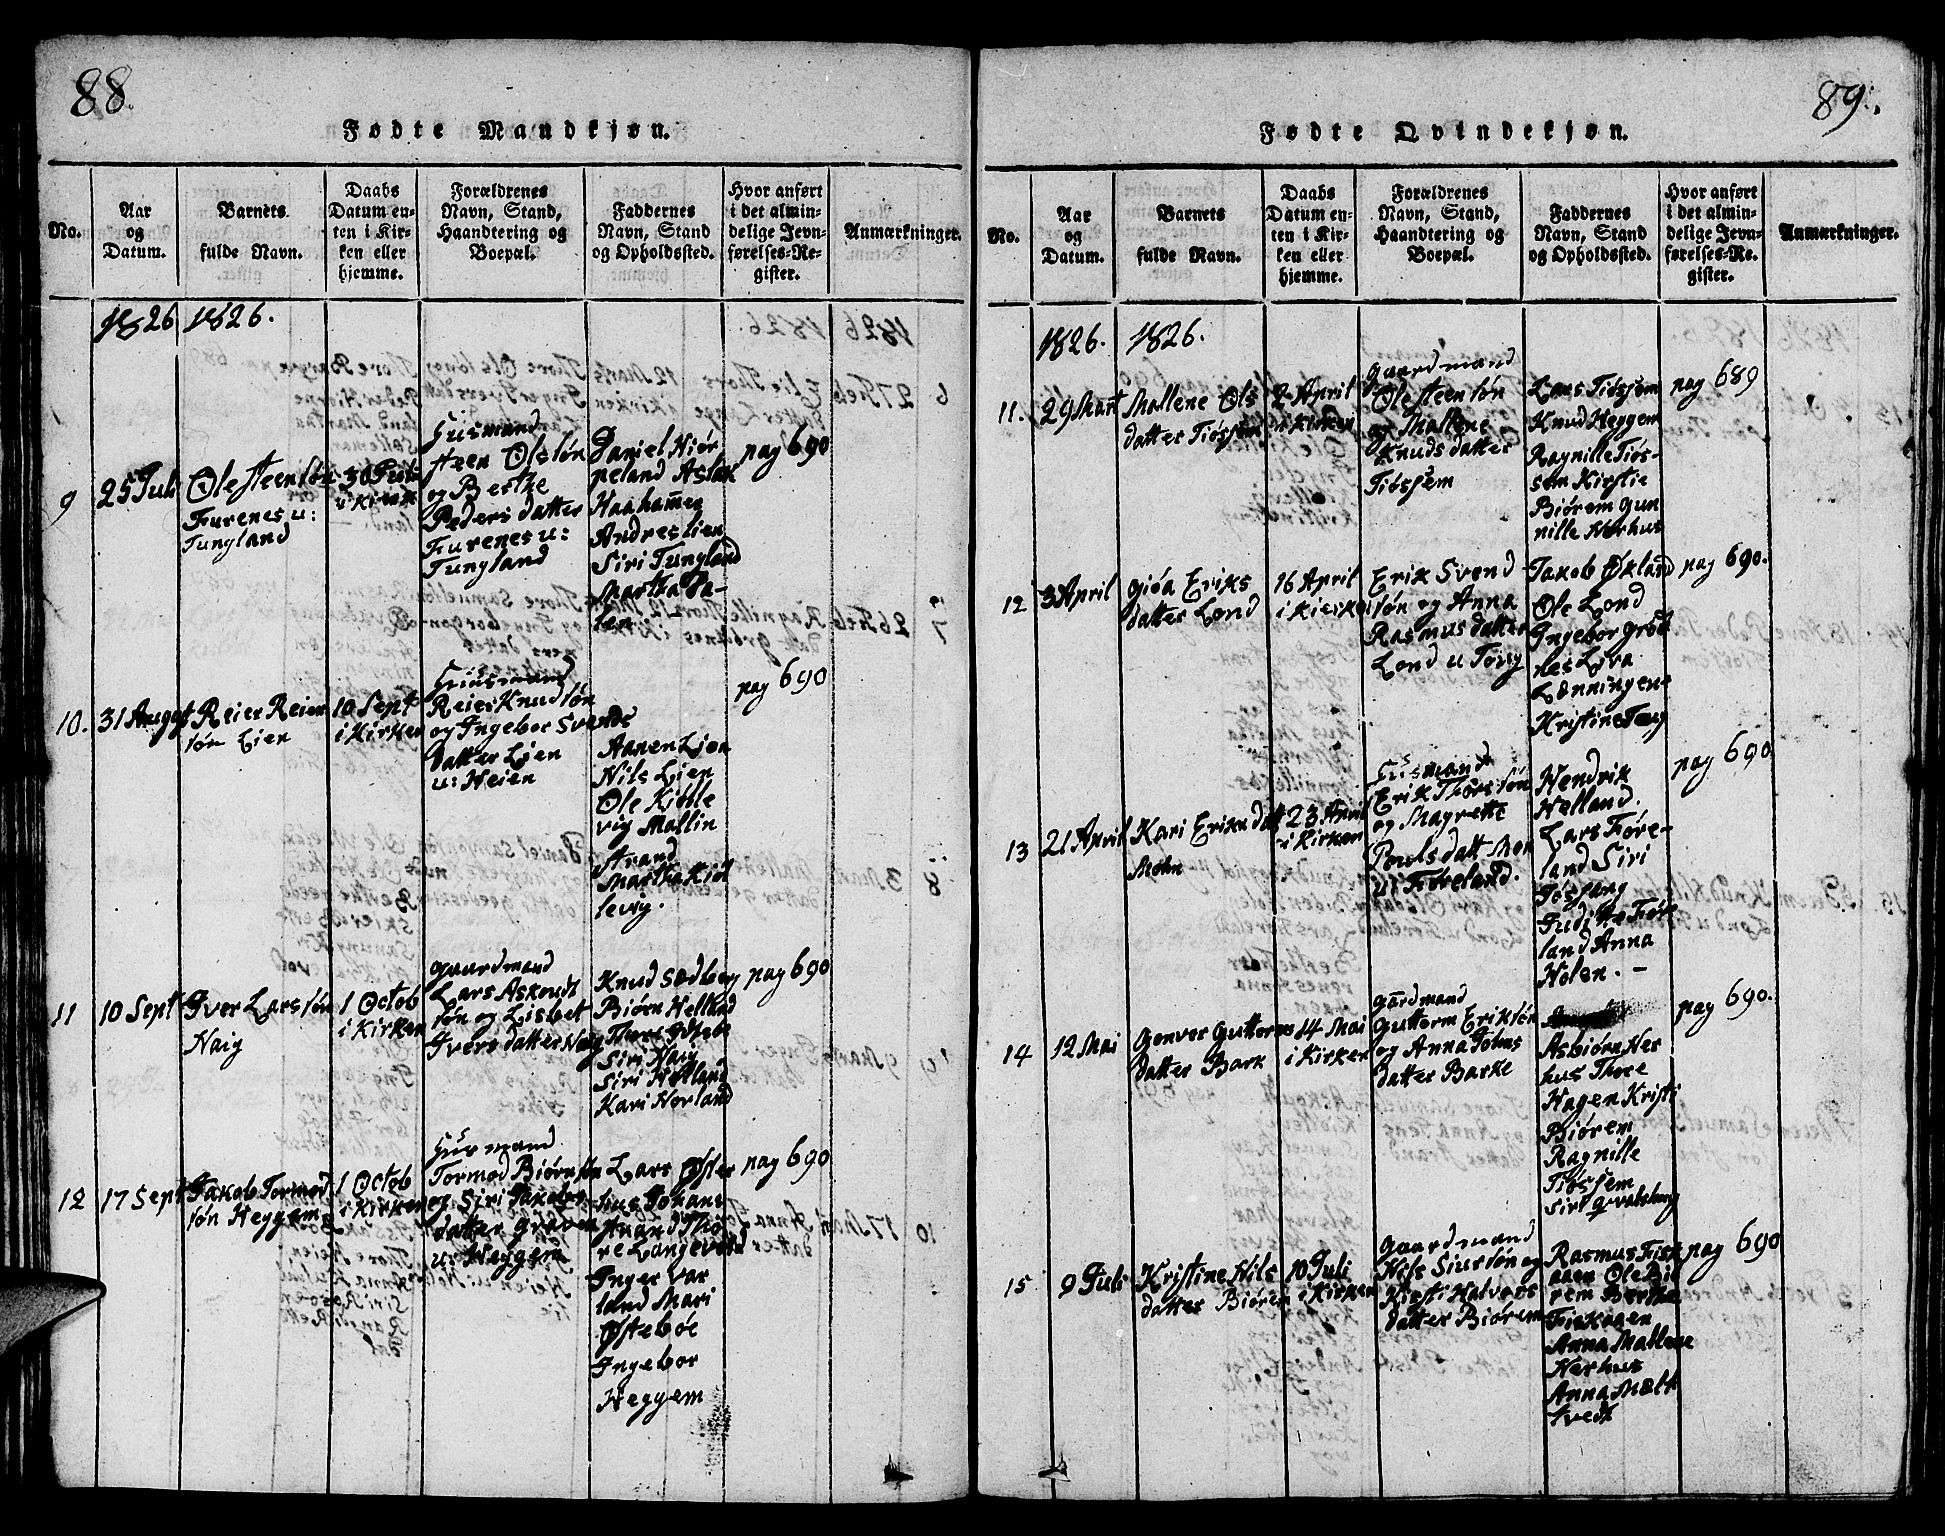 88.
Fødte Mandkjøn.
No.
Aar
og
Datum.
Barnets
fulde Navn.
Daabs
Datum en-
ten i Kir-
ken eller
hjemme.
Forældrenes
Navn, Stand,
Haandtering og
Boepæl.
Faddernes
Navn, Stand
og Opholdssted.
Hvor anført
i det almin-
delige Jevn-
førelses-Re-
gister.
Anmærkninger.
1826 1826.
9
25 Juli
Ole Steensøn
Furenes u:
Tungland
30 Juli
i Kirk
Huusmand
Steen Olsøn
og Berthe
Peders datter
Furenes u:
Tungland
Daniel Hiør
peland Aslak
Haahammer
Andres Lien
Siri Tungland
Martha Da-
len
pag 690
10.
31 August
Reier Reier
søn Lien
10 Sept
i Kirken
Huusmand
Reier Knudsøn
og Ingebor Svends
datter Lien
u: Heien
Aanen Lien
Nils Lien
Ole Kidle
vig Mallin
Strand
Martha Kid
levig.
pag 690
11
10 Sept
Iver Larssøn
Haig
1 Octob
i Kirken
Gaardmand
Lars Askoudt
søn og Lisbet
Ivers datter Haig
Knud Sædberg
Biørn Helland
Thore
Siri Haig
Siri Hetland
Kari Norland
pag 690
12
17 Sept
Jakob Tormod
søn Heggem
1 Octob
i Kirken
Huusmand
Tormod Biørnsøn
og Siri Jakobs
datter Graven
u: Heggem
Lars Øster
hus Johans
Aaand Tho
re Langeveld
Inger Var
land Mari
Østebøe
Ingebor
Heggem
pag 690
89.
Fødte Qvindekjøn.
No.
Aar
og
Datum.
Barnets
fulde Navn.
Daabs
Datum en-
ten i Kir-
ken eller
hjemme.
Forældrenes
Navn, Stand,
Haandtering og
Boepæl.
Faddernes
Navn, Stand
og Opholdssted.
Hvor anført
i det almin-
delige Jevn-
førelses-Re-
gister.
Anmærkninger.
1826. 1826.
11.
29 Mart
Mallene Ols
datter Tiøssem
2 April
i Kirken
Gaardmand
Ole Steensøn
og Mallene
Knuds datter
Tiøssem
Lars Tiøssem
Knud Heggem
Ragnille Tiøs-
sem Kirstie
Biørem Gun
nille Nerhus
pag 689
12
3 April
Giøa Eriks
datter Lond
16 April
i Kirken
Erik Svend-
søn og Anna
Rasmus datter
Lond u Tøng
Jakob Økland
Ole Lond
Ingebor Grød
hes Liva
Lænningen
Kristine Tøng
pag 690.
13
21 April
Kari Eriksdatt
Mohn
23 April
i Kirken
Huusmand
Erik Thorssøn
og Magrette
Pouls datt Mon
u: Føreland.
Hendrik
Helland.
Lars Føre-
land Siri
Tøstang
Judithe Føre
land Anna
Holen. –
pag 690
14
12 Mai
Gonver Guttorms
datter Bark
14 Mai
i Kirken
Gardmand
Guttorm Eriksøn
og Anna Johns
datter Barke
Asbiørn Ner
hus Thore
Hagen Kristi
Biørem
Ragnille
Tiøssem
Siri Qvalshug
pag 690.
15
9 Juli
Kristine Nils
datter Biørem
10 Juli
i Kirken
Gaardmand
Nils Siursøn og
Kirsti Halvors
datter Biørem
Rasmus Fisk
aaen Ole Biø
rem Berthe
Fiskaaen
Anna Mallene
Nerhus
Anna Mælk
tvedt
pag 690